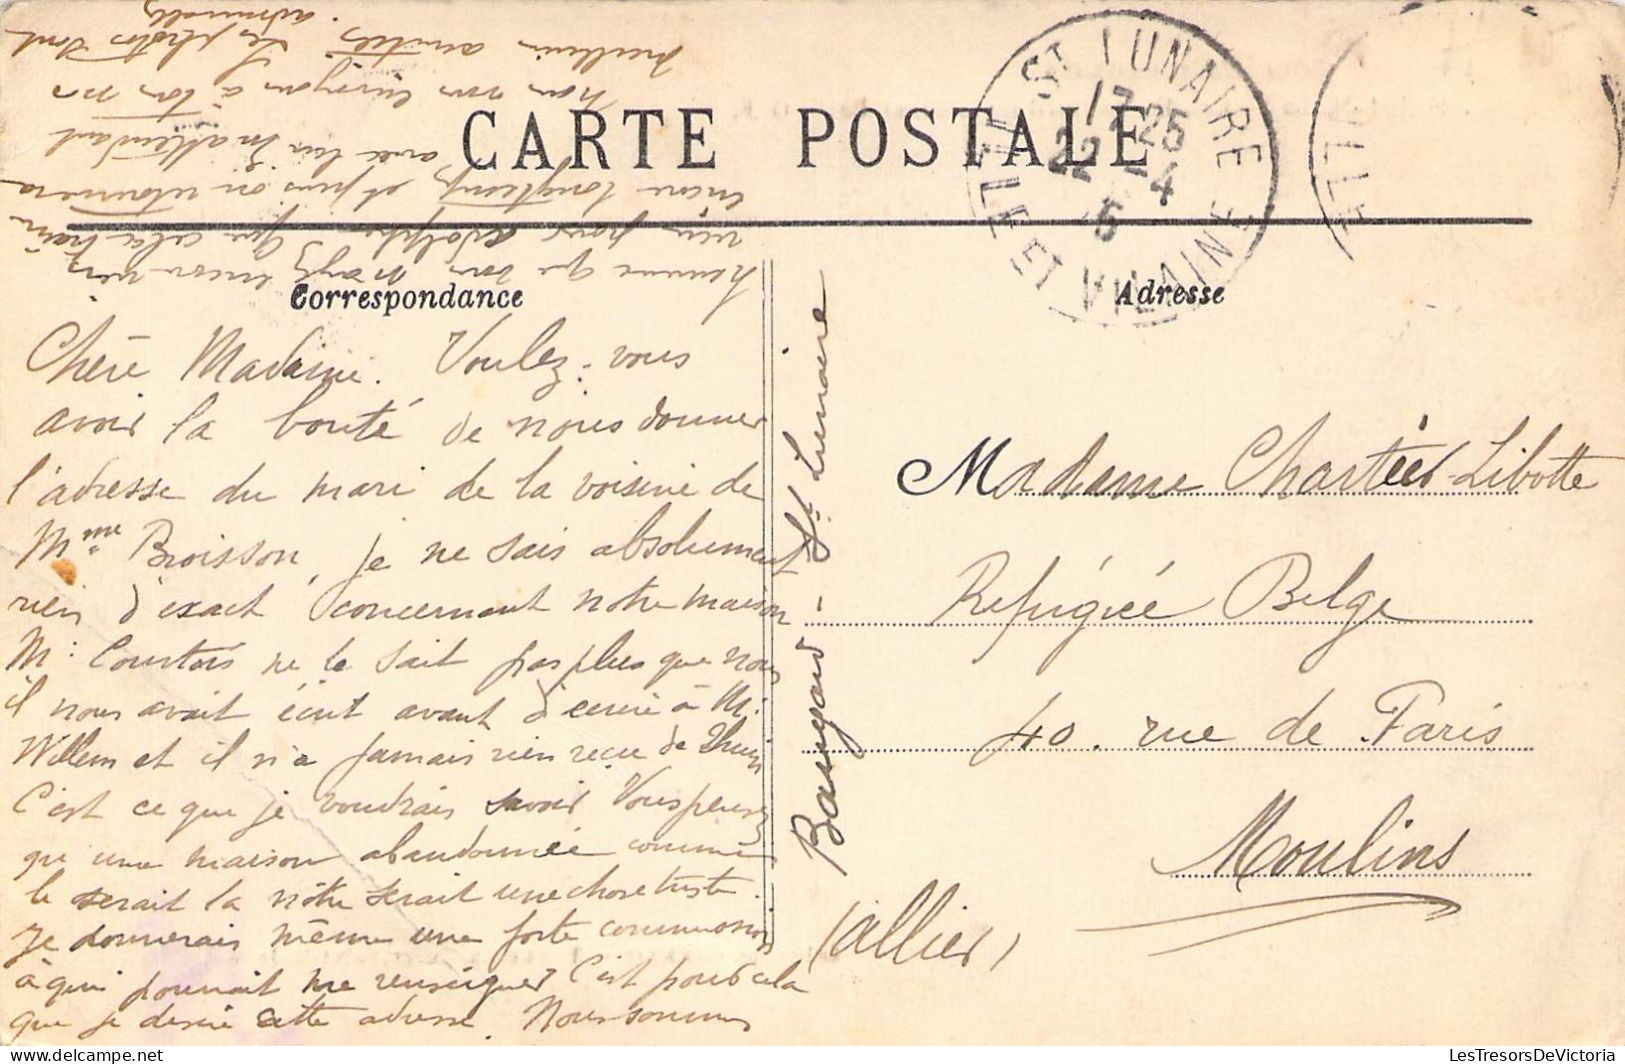 CARTE POSTALE
Correspondance
Adresse
ST LUNAIRE
17 25
22 - 4
ILLE ET VILAINE
ILLE
Chère Madame. Voulez-vous
avoir la bonté de nous donner
l'adresse du mari de la voisine de
Mme Broisson, je ne sais absolument
rien d'exact concernant notre maison
M. Courtois ne le sait pas plus que nous
il nous avait écrit avant d'écrire à M.
Willem et il n'a jamais rien reçu de Thuin
C'est ce que je voudrais savoir Vous pensez
qu'une maison abandonnée comme
le serait la nôtre serait une chose triste.
Je donnerais même une forte commission
à qui pourrait me renseigner C'est pour cela
que je désire cette adresse. Nous sommes
heureux que vous encore
rien pour Adolphe que cela
encore longtemps et puis on retournera
avec lui En attendant
nous vous envoyons à tous
meilleures amitiés. Les photos sont
admirables
St Lunaire
Madame Chartier-Libotte
Réfugiée Belge
40. rue de Paris
Moulins
(Allier)
LesTresorsDeVictoria